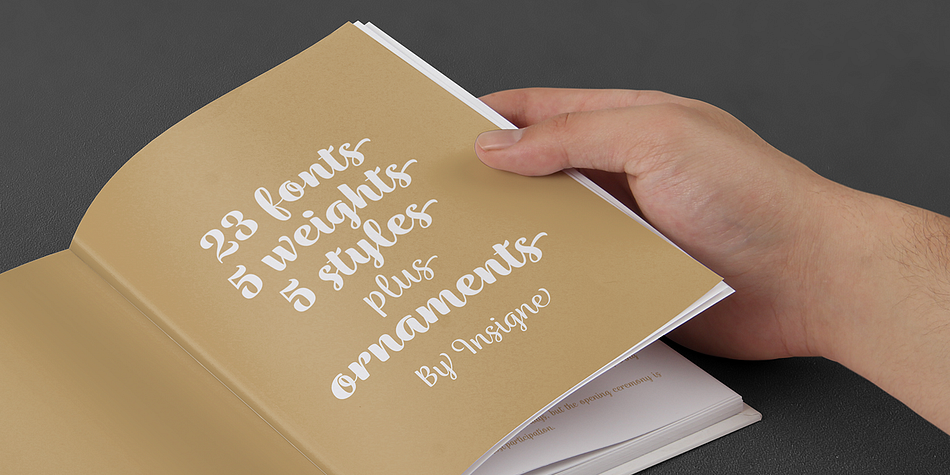 23 fonts
5 weights
5 styles
plus
ornaments
By Insigne
but the opening ceremony is
participation.